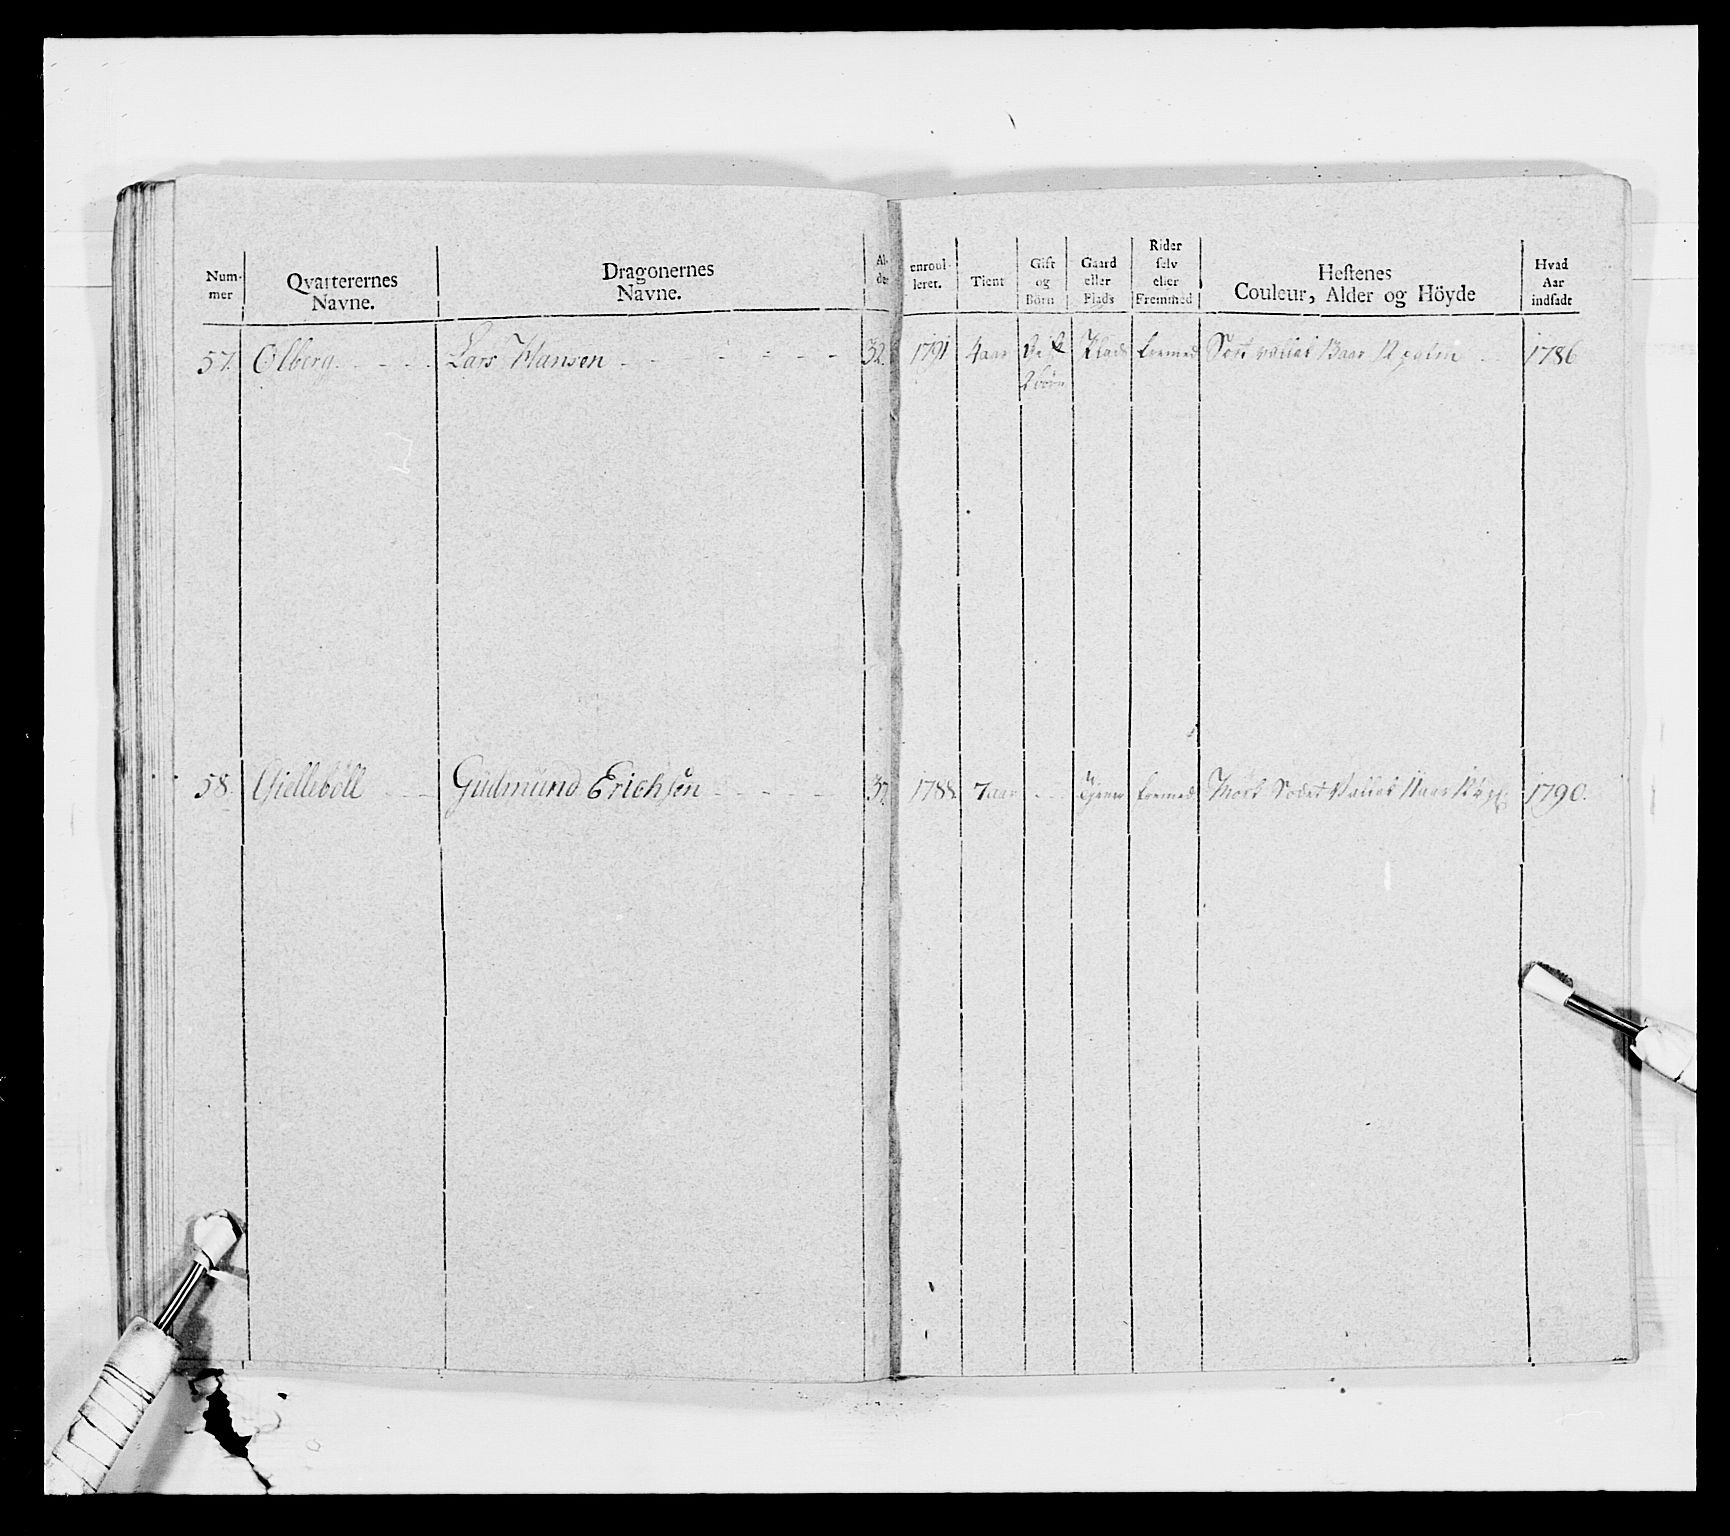 Num-
mer
Qvarterernes
Navne.
Dragonernes
Navne.
Al-
der
enroul-
leret.
Tient
Gift
og
Börn
Gaard
eller
Plads
Rider
selv
eller
Fremmed
Hestenes
Couleur, Alder og Höyde
Hvad
Aar
indsadt
57. Ölberg. Lars Hansen 32. 1791 4 aar Gift Plads fremed Sort vallak 13 aar 12 palm 1786
2 börn
58. Gielleböll Gudmund Erichsen 37. 1788. 7 aar Tjener fremed Mörk Vallak 11 aar 1790.